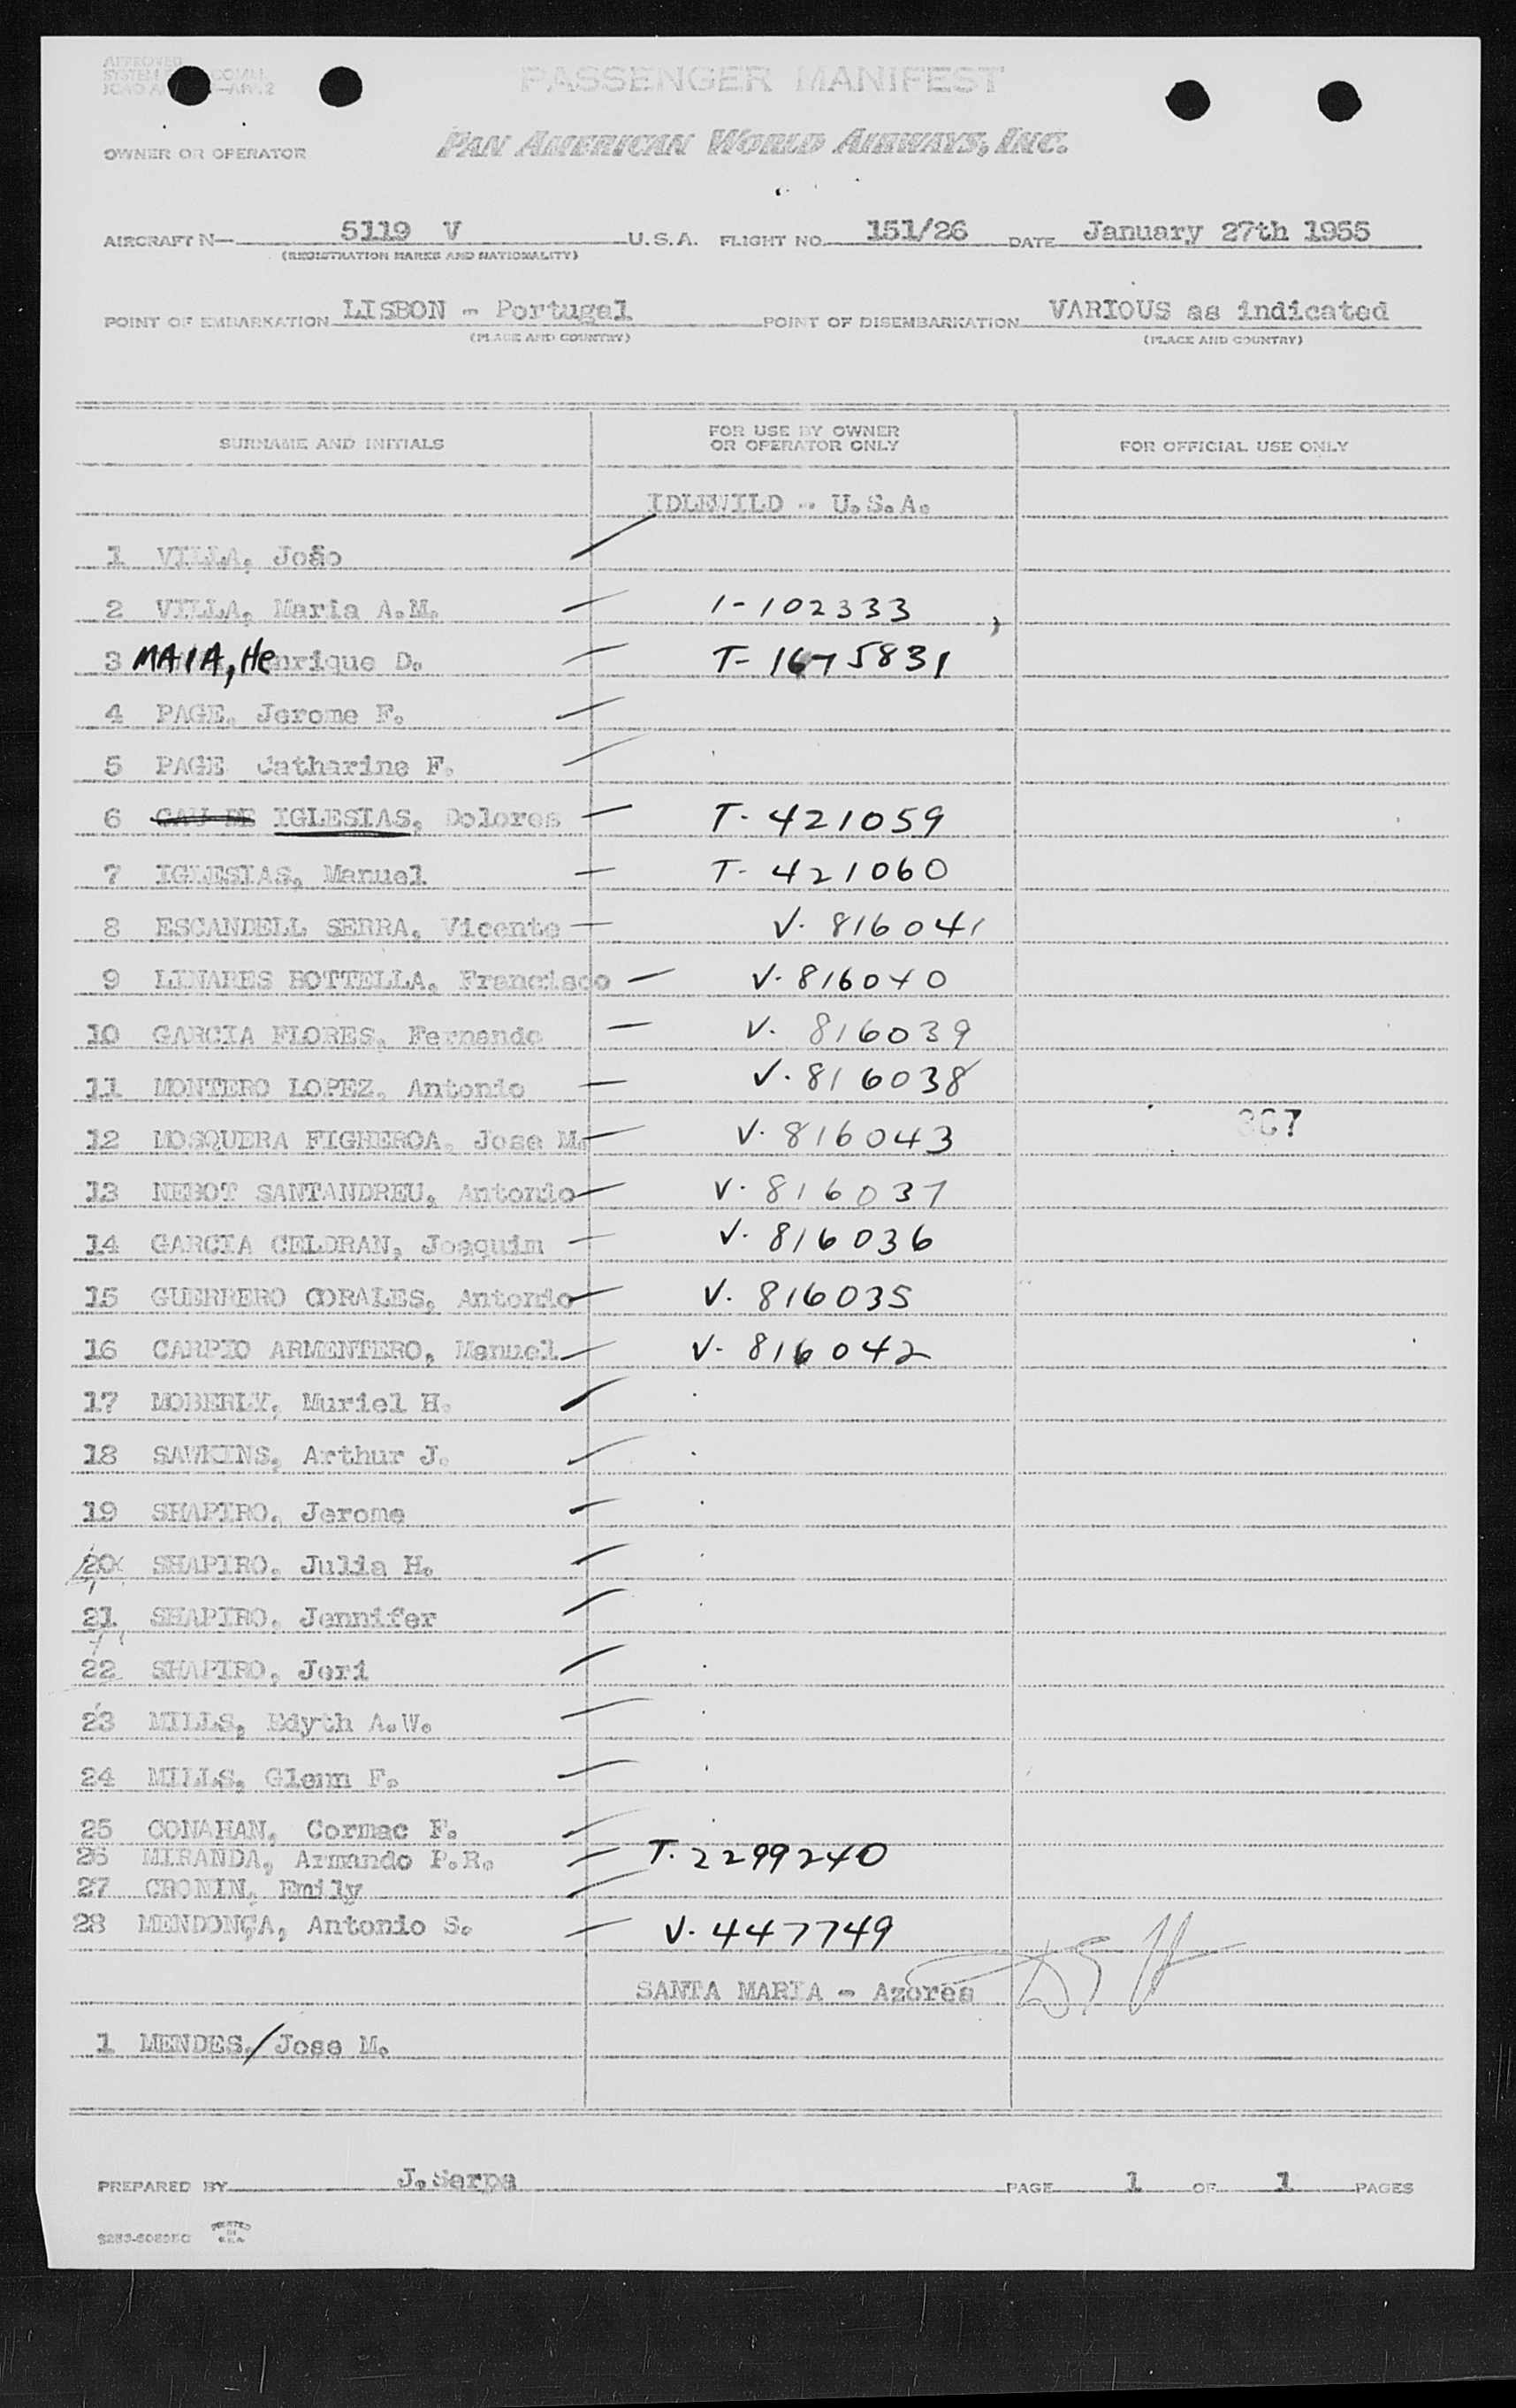 APPROVED
SYSTEM
PASSENGER MANIFEST
OWNER OR OPERATOR PAN AMERICAN WORLD AIRWAYS, INC.
AIRCRAFT N— 5119 V U.S.A. FLIGHT NO. 151/26 DATE January 27th 1955
(REGISTRATION MARKS AND NATIONALITY)
POINT OF EMBARKATION LISBON - Portugal POINT OF DISEMBARKATION VARIOUS as indicated
(PLACE AND COUNTRY) (PLACE AND COUNTRY)
SURNAME AND INITIALS FOR USE BY OWNER OR OPERATOR ONLY FOR OFFICIAL USE ONLY
IDLEWILD - U.S.A.
1 VILLA, João
2 VILLA, Maria A.M. 1-102333
3 MAIA, Henrique D. T-1675831
4 PAGE, Jerome F.
5 PAGE Catharine F.
6 GAU DE IGLESIAS, Dolores T-421059
7 IGLESIAS, Manuel T-421060
8 ESCANDELL SERRA, Vicente V-816041
9 LINARES BOTTELLA, Francisco V-816040
10 GARCIA FLORES, Fernando V. 816039
11 MONTERO LOPEZ, Antonio V-816038
12 MOSQUERA FIGHEROA, Jose M. V-816043
13 NEBOT SANTANDREU, Antonio V-816037
14 GARCIA CELDRAN, Joaquim V-816036
15 GUERRERO CORALES, Antonio V. 816035
16 CARPIO ARMENTERO, Manuel V-816042
17 MOBERLY, Muriel H.
18 SAWKINS, Arthur J.
19 SHAPIRO, Jerome
20 SHAPIRO, Julia H.
21 SHAPIRO, Jennifer
22 SHAPIRO, Jeri
23 MILLS, Edyth A.W.
24 MILLS, Glenn F.
25 CONAHAN, Cormac F.
26 MIRANDA, Armando P.R. T. 2299240
27 CRONIN, Emily
28 MENDONÇA, Antonio S. V. 447749
SANTA MARIA - Azores
1 MENDES, Jose M.
PREPARED BY J. Serpa PAGE 1 OF 1 PAGES
PRINTED IN U.S.A.